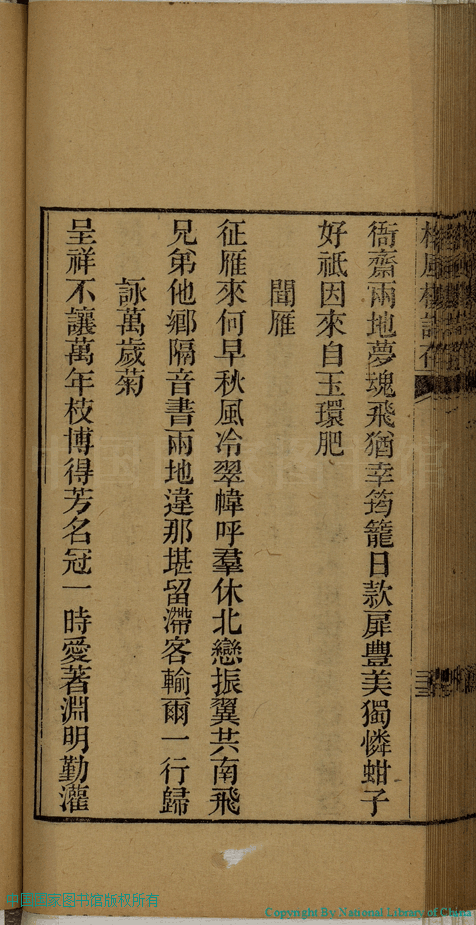 衙齋兩地夢魂飛猶幸筠籠日款扉豐美獨憐蚶子
好祇因來自玉環肥
聞雁
征雁來何早秋風冷翠幃呼羣休北戀振翼共南飛
兄弟他鄉隔音書兩地違那堪留滯客輸爾一行歸
詠萬歲菊
呈祥不讓萬年枝博得芳名冠一時愛著淵明勤灌
中国国家图书馆版权所有
Copyright By National Library of China